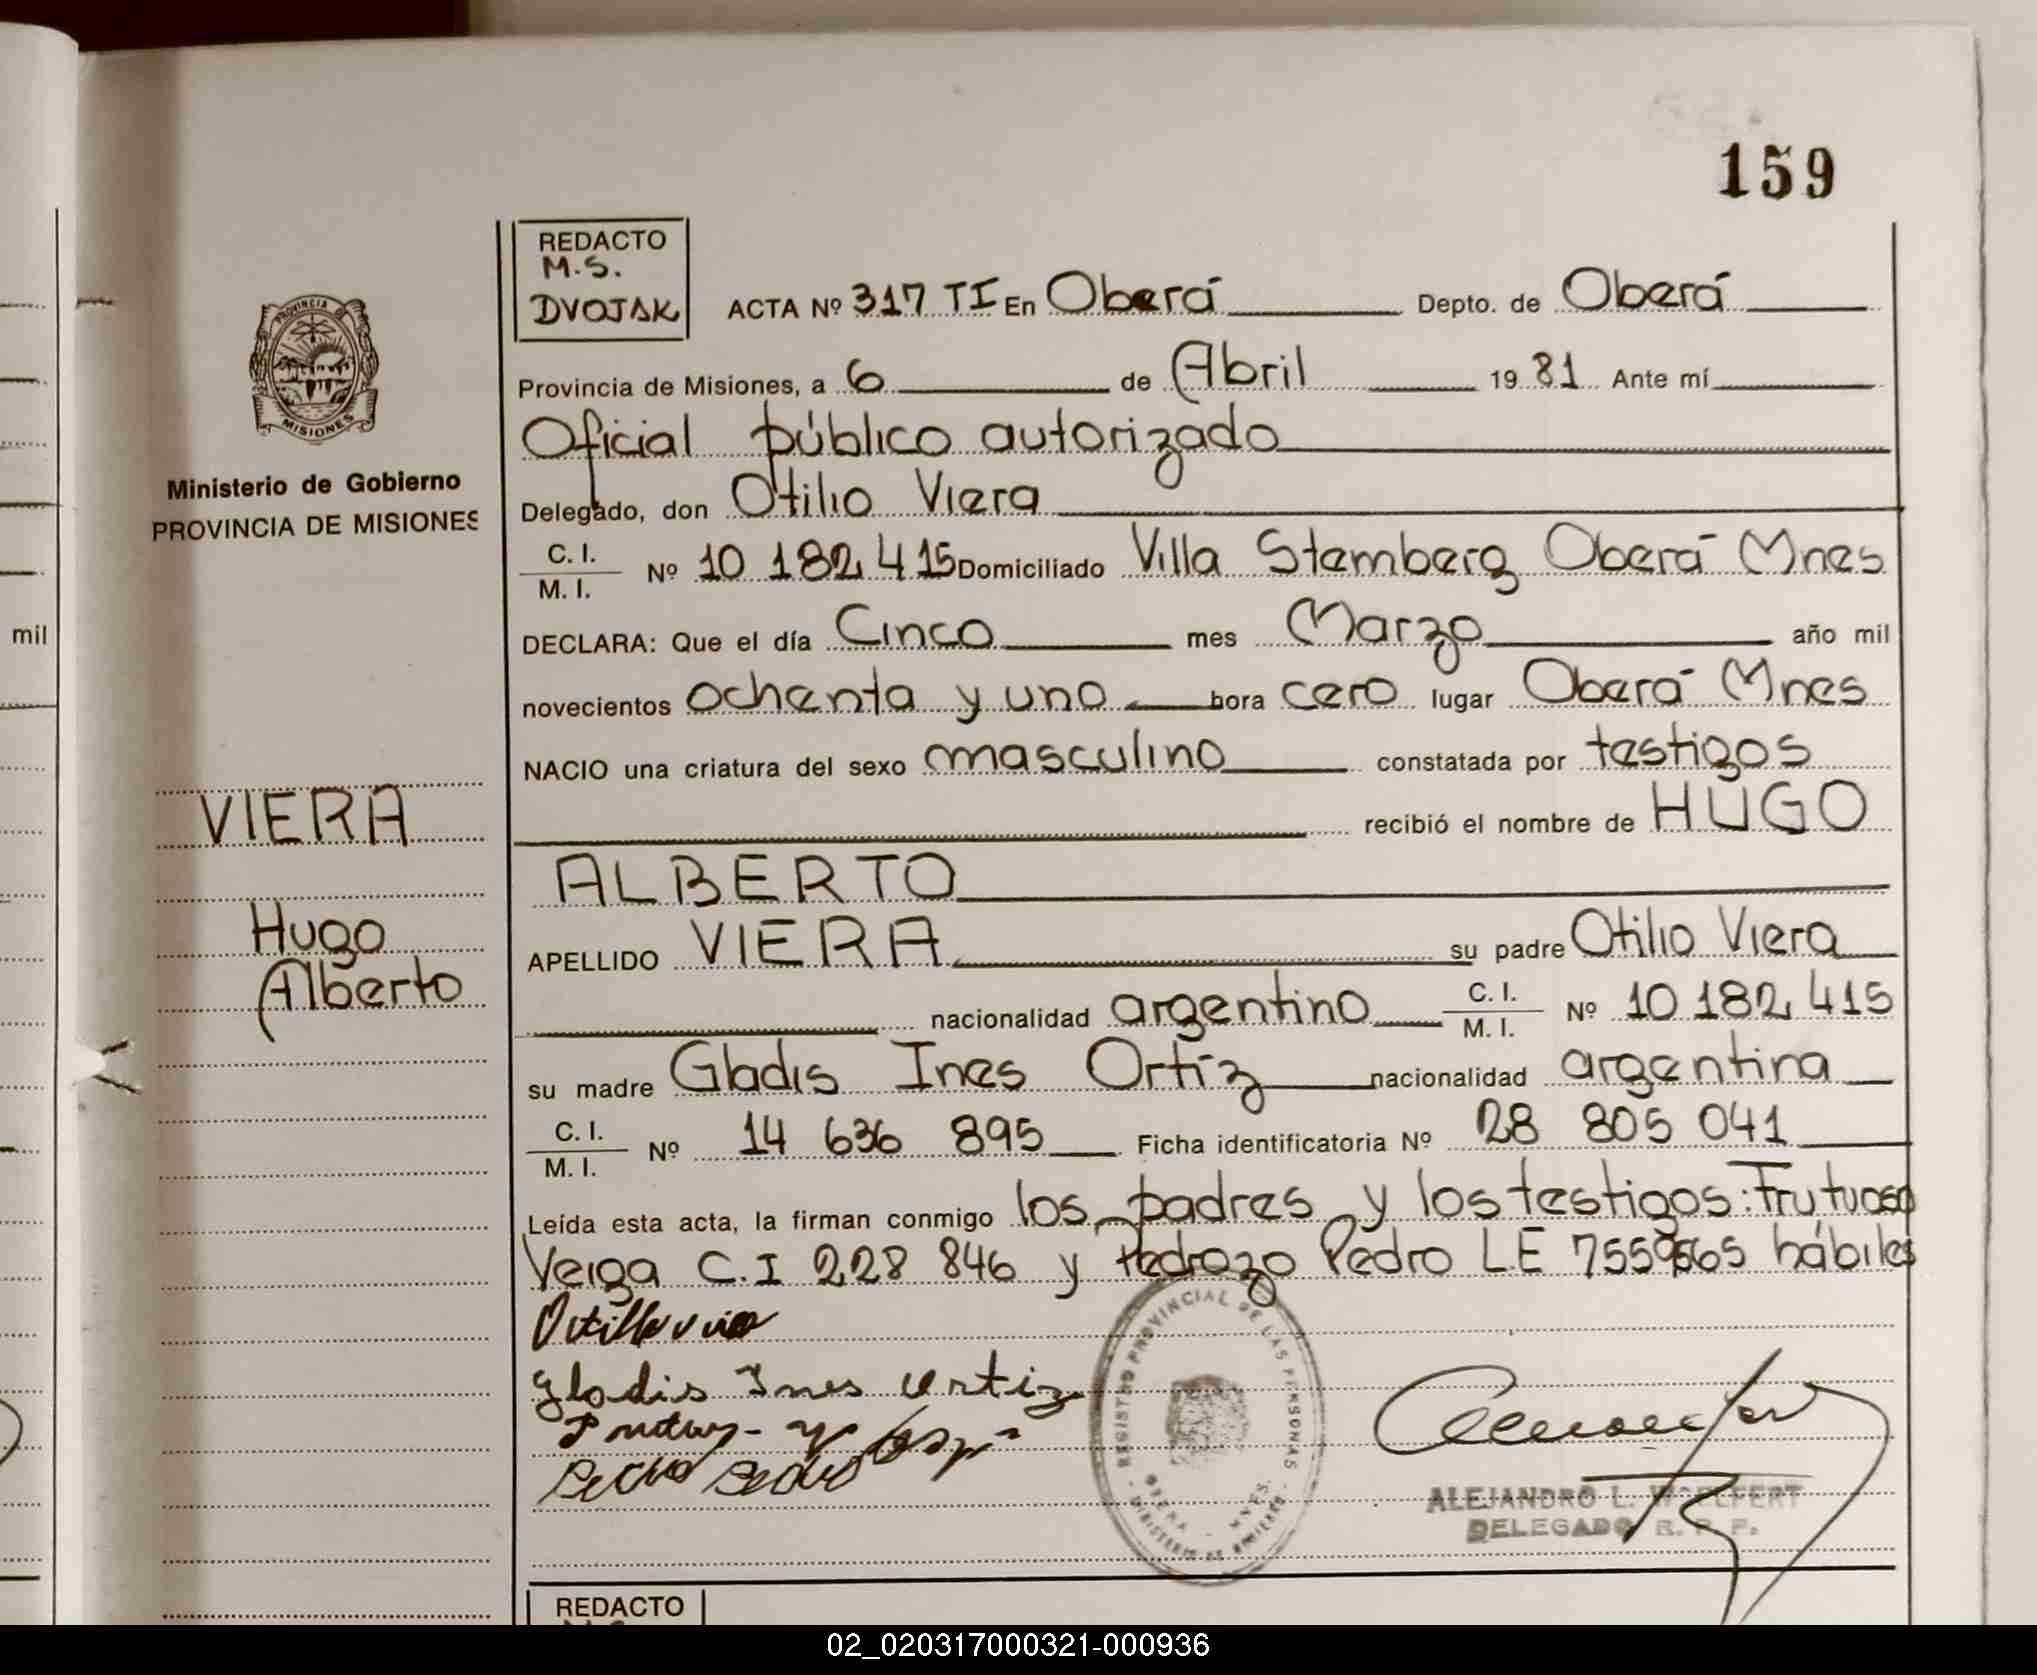 159
REDACTO
M.S.
DVOJAK
ACTA Nº 317 TI En Oberá Depto. de Oberá
Provincia de Misiones, a 6 de Abril 1981 Ante mí
Oficial público autorizado
Delegado, don Otilio Viera
C. I.
M. I.
Nº 10 182 415 Domiciliado Villa Stemberg Oberá Mnes
DECLARA: Que el día Cinco mes Marzo año mil
novecientos ochenta y uno hora cero lugar Oberá Mnes
NACIO una criatura del sexo masculino constatada por testigos
recibió el nombre de HUGO
ALBERTO
APELLIDO VIERA su padre Otilio Viera
nacionalidad argentino C. I. M. I. Nº 10 182 415
su madre Gladis Ines Ortiz nacionalidad argentina
C. I. M. I. Nº 14 636 895 Ficha identificatoria Nº 28 805 041
Leída esta acta, la firman conmigo los padres y los testigos: Frutuoso
Veiga C.I 228 846 y Pedrozo Pedro LE 7559565 hábiles
Gladis Ines Ortiz
REGISTRO PROVINCIAL DE LAS PERSONAS
OBERA - MNES.
MINISTERIO DE GOBIERNO
ALEJANDRO L. WOELFERT
DELEGADO R. P. P.
REDACTO
PROVINCIA DE
MISIONES
Ministerio de Gobierno
PROVINCIA DE MISIONES
VIERA
Hugo
Alberto
mil
02_020317000321-000936